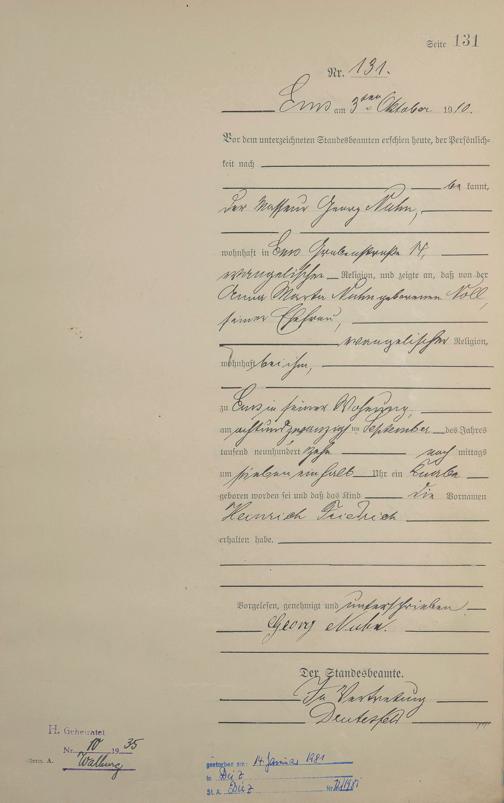 Seite 131
Nr. 131.
Ems am 3ten Oktober 1910.
Vor dem unterzeichneten Standesbeamten erschien heute, der Persönlich-
keit nach
be kannt,
der Masseur Georg Nuhn,
wohnhaft in Ems Grabenstraße 14,
evangelischer Religion, und zeigte an, daß von der
Anna Marta Nuhn geborenen Noll,
seiner Ehefrau,
evangelischer Religion,
wohnhaft bei ihm,
zu Ems in seiner Wohnung,
am achtundzwanzigsten September des Jahres
tausend neunhundert zehn nach mittags
um sieben einhalb Uhr ein Knabe
geboren worden sei und daß das Kind die Vornamen
Heinrich Friedrich
erhalten habe.
Vorgelesen, genehmigt und unterschrieben
Georg Nuhn.
Der Standesbeamte.
In Vertretung
H. Geheiratet
Nr. 10 1935
gestorben am: 14. Januar 1981
in Diez
St. A. Diez Nr.